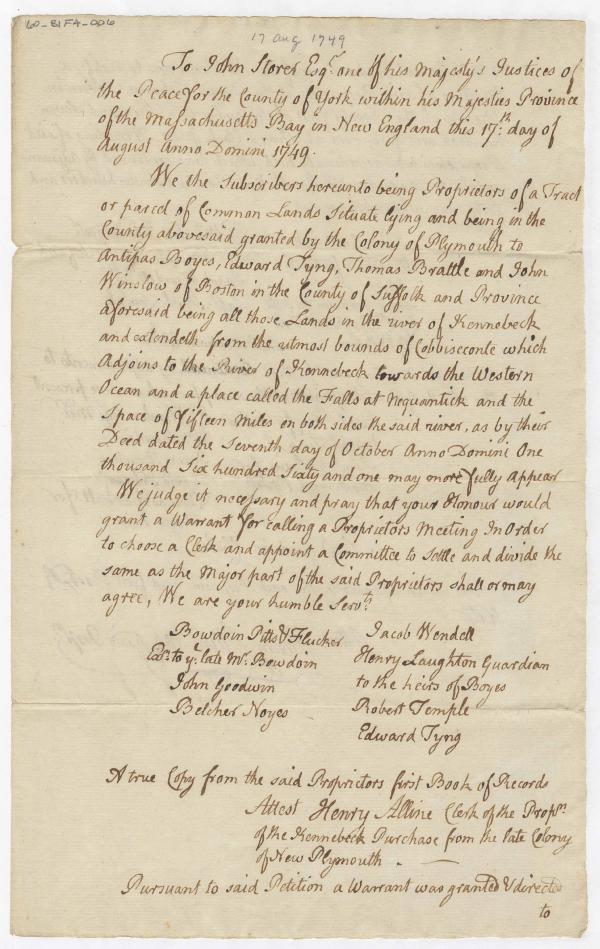 60-BIFA-006
17 aug 1749
To John Storer Esqr. one of his Majesty's Justices of
the Peace for the County of York within his Majesties Province
of the Massachusetts Bay in New England this 17.th day of
August Anno Domini 1749.
We the Subscribers hereunto being Proprietors of a Tract
or parcel of Common Lands Situate lying and being in the
County abovesaid granted by the Colony of Plymouth to
Antipas Boyes, Edward Tyng, Thomas Brattle and John
Winslow of Boston in the County of Suffolk and Province
aforesaid being all those Lands in the river of Kennebeck
and extendeth from the utmost bounds of Cobbiseconte which
Adjoins to the River of Kennebeck towards the Western
Ocean and a place called the Falls at Nequantick and the
Space of Fifteen Miles on both sides the said river, as by their
Deed dated the Seventh day of October Anno Domini One
thousand Six hundred Sixty and one may more fully Appear
We judge it necessary and pray that your Honour would
grant a Warrant for calling a Proprietors Meeting In Order
to choose a Clerk and appoint a Committee to Settle and divide the
same as the Major part of the said Proprietors shall or may
agree, We are your humble Servts.
Bowdoin Pitts & Flucker
Exrs. to ye. late Mr. Bowdoin
John Goodwin
Belcher Noyes
Jacob Wendell
Henry Laughton Guardian
to the heirs of Boyes
Robert Temple
Edward Tyng
A true Copy from the said Proprietors first Book of Records
Attest Henry Alline Clerk of the Proprs.
of the Kennebeck Purchase from the late Colony
of New Plymouth.
Pursuant to said Petition a Warrant was granted & directed
to